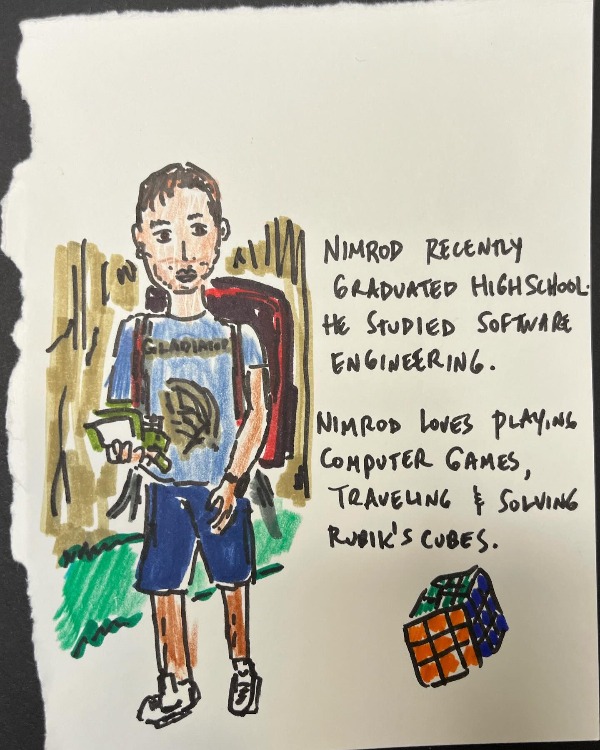 GLADIATOR
NIMROD RECENTLY
GRADUATED HIGHSCHOOL.
HE STUDIED SOFTWARE
ENGINEERING.
NIMROD LOVES PLAYING
COMPUTER GAMES,
TRAVELING & SOLVING
RUBIK'S CUBES.